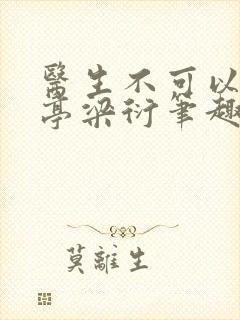 醫生不可以
亭梁衍筆趣
莫離生